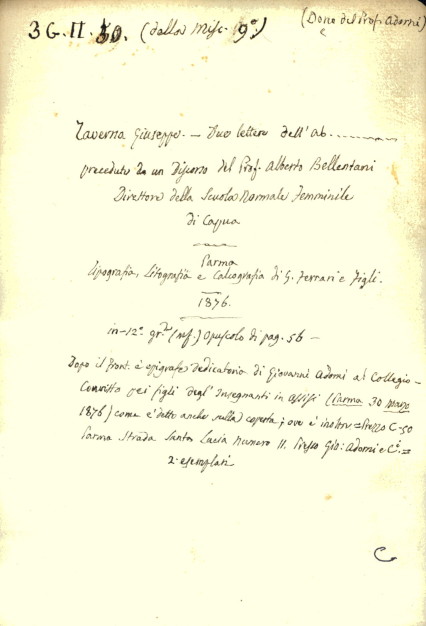 3 G. II. 50. (dalla Misc. 9ª) (Dono del Prof. Adorni)
Taverna Giuseppe. — Due lettere dell'Ab.
precedute da un Discorso del Prof. Alberto Bellentani
Direttore della Scuola Normale Femminile
di Capua
Parma
Tipografia, Litografia e Calcografia di G. Ferrari e Figli.
1876.
in-12º gr. (mf.) Opuscolo di pag. 56 —
Dopo il front. è epigrafe dedicatoria di Giovanni Adorni al Collegio-
Convitto pei figli degl'Insegnanti in Assisi (Parma 30 Marzo
1876) come è detto anche sulla coperta; ove è inoltre = Prezzo C. 50
Parma Strada Santa Lucia Numero 11. Presso Gio: Adorni e Cⁱ. =
2 esemplari
C